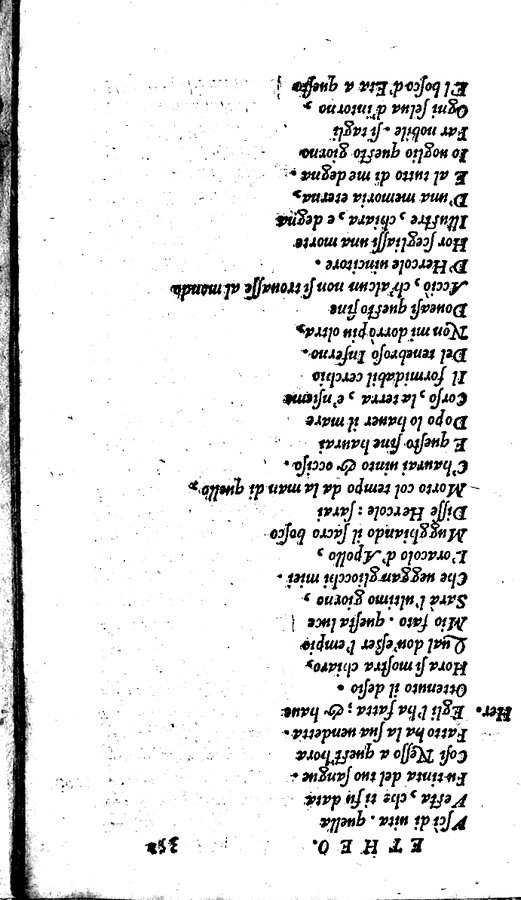 ETHEO. 352
Vſcì di uita. quella
Veſta, che ti fu data
Fu tinta del tuo ſangue.
Coſi Neſſo a queſt'hora
Fatto ha la ſua uendetta.
Her. Egli l'ha fatta: & haue
Ottenuto il deſio.
Hora ſi moſtra chiaro,
Qual dou'eſſer l'empio
Mio fato. queſta luce
Sarà l'ultimo giorno,
Che ueggan gliocchi miei.
L'oracolo d'Apollo,
Mugghiando il ſacro boſco
Diſſe Hercole: ſarai
Morto col tempo da la man di quello,
C'haurai uinto & occiſo.
E queſto fine haurai
Dopo lo hauer il mare
Corſo, la terra, e'nſieme
Il formidabil cerchio
Del tenebroſo Inferno.
Non mi dorrò piu oltra,
Doueaſi queſto fine
Acciò, ch'alcun non ſi trouaſſe al mondo
D'Hercole uincitore.
Hor ſcegliaſſi una morte
Illuſtre, chiara, e degna
D'una memoria eterna,
E al tutto di me degna.
Io uoglio queſto giorno
Far nobile. ſi tagli
Ogni ſelua d'intorno,
E'l boſco d'Eta a queſto